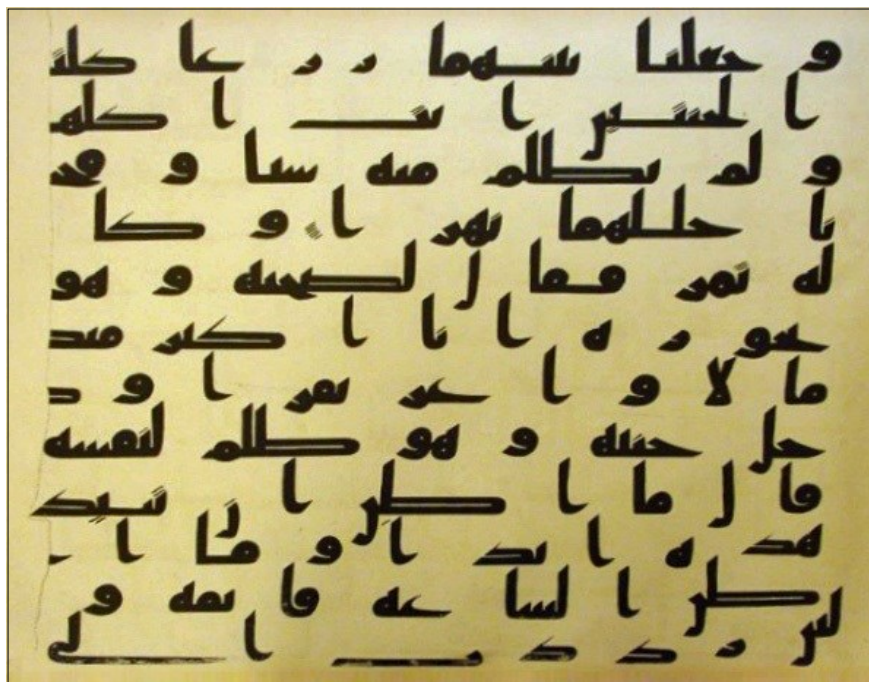 و جعلنا بينهما زرعا كلتا
الجنتين اتت اكلها
و لم تظلم منه شيا و فجر
نا خللهما نهرا و كان
له ثمر فقال لصحبه و هو
يحوره انا اكثر منك
مالا و اعز نفرا و د
خل جنته و هو ظلم لنفسه
قال ما اظن ان تبيد
هذه ابدا و ما ا
ظن الساعه قايمه و
لين رددت الى